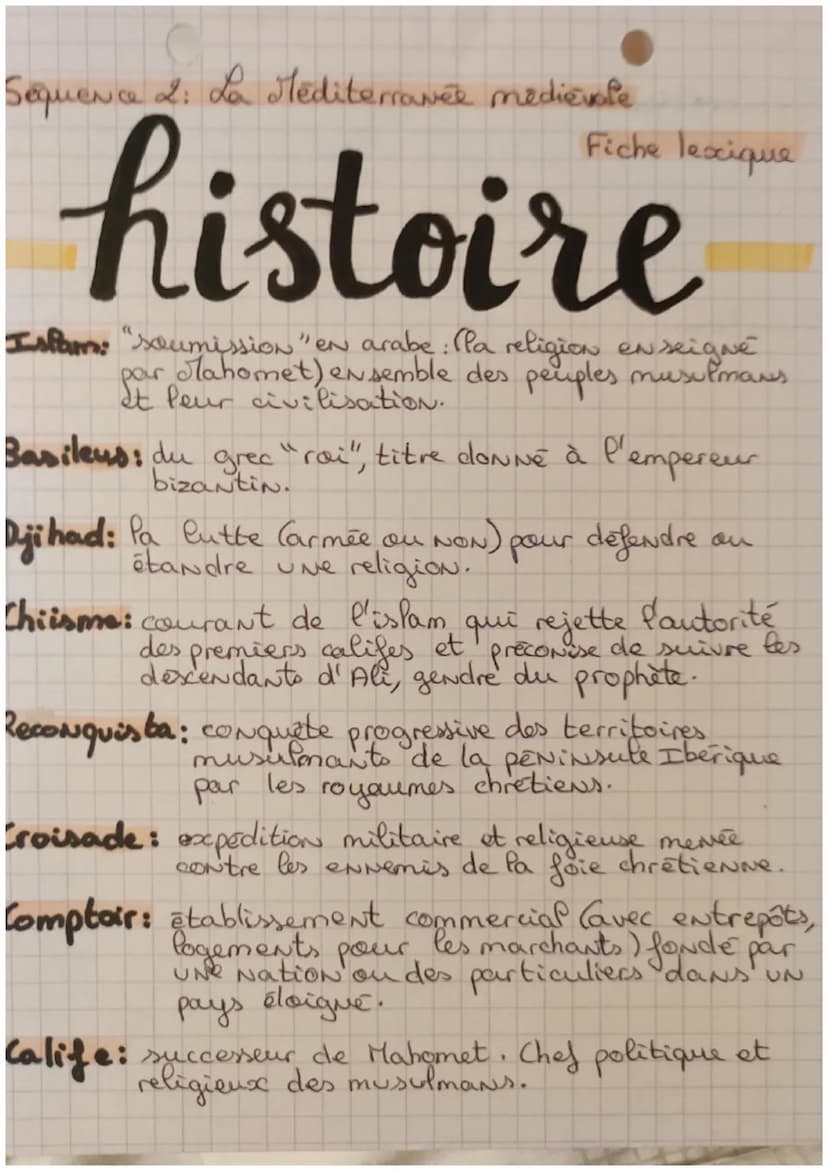 Séquence 2: La Méditerranée médiévale
Fiche lexique
histoire
Islam: "soumission" en arabe : (la religion enseigné
par Mahomet) ensemble des peuples musulmans
et leur civilisation.
Basileus: du grec "roi", titre donné à l'empereur
bizantin.
Djihad: la lutte (armée ou non) pour défendre ou
étandre une religion.
Chiisme: courant de l'islam qui rejette l'autorité
des premiers califes et préconise de suivre les
descendants d'Ali, gendre du prophète.
Reconquista: conquête progressive des territoires
musulmants de la péninsule Ibérique
par les royaumes chrétiens.
Croisade: expédition militaire et religieuse menée
contre les ennemis de la foie chrétienne.
Comptoir: établissement commercial (avec entrepôts,
logements pour les marchants) fondé par
une nation ou des particuliers dans un
pays éloigné.
Calife: successeur de Mahomet. Chef politique et
religieux des musulmans.